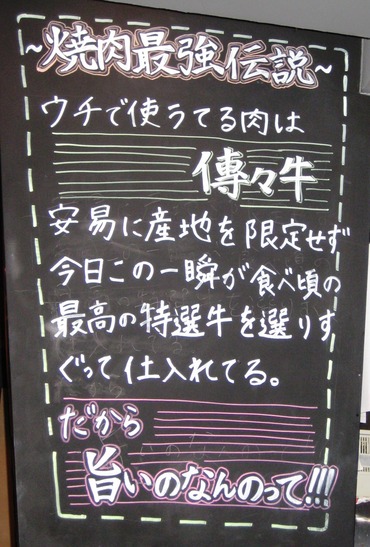 ~焼肉最強伝説~
ウチで使うてる肉は
傳々牛
安易に産地を限定せず
今日この一瞬が食べ頃の
最高の特選牛を選りす
ぐって仕入れてる。
だから
旨いのなんのって!!!